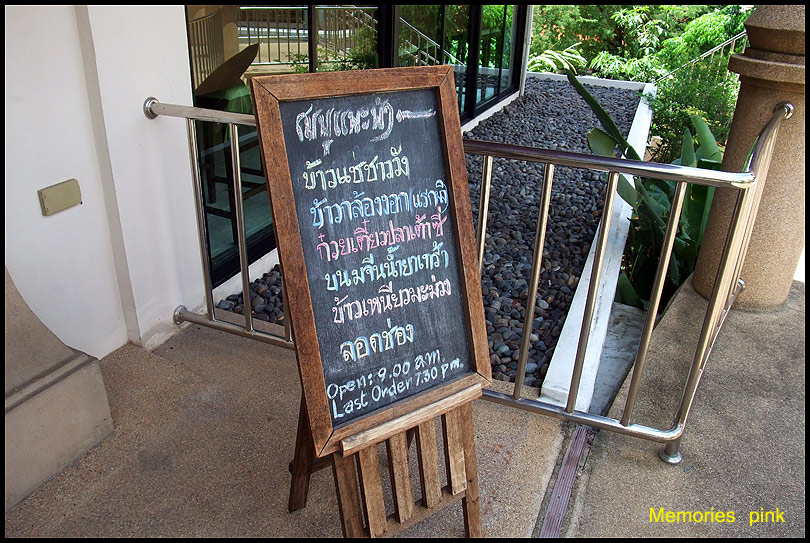 เมนูแนะนำ
ข้าวแช่ชาววัง
ข้าวกล้องงอก
ก๋วยเตี๋ยวปลาเต้าซี่
ขนมจีนน้ำยา
ข้าวเหนียวมะม่วง
ลอดช่อง
Open: 9.00 a.m.
Last Order 7.30 p.m.
Memories pink